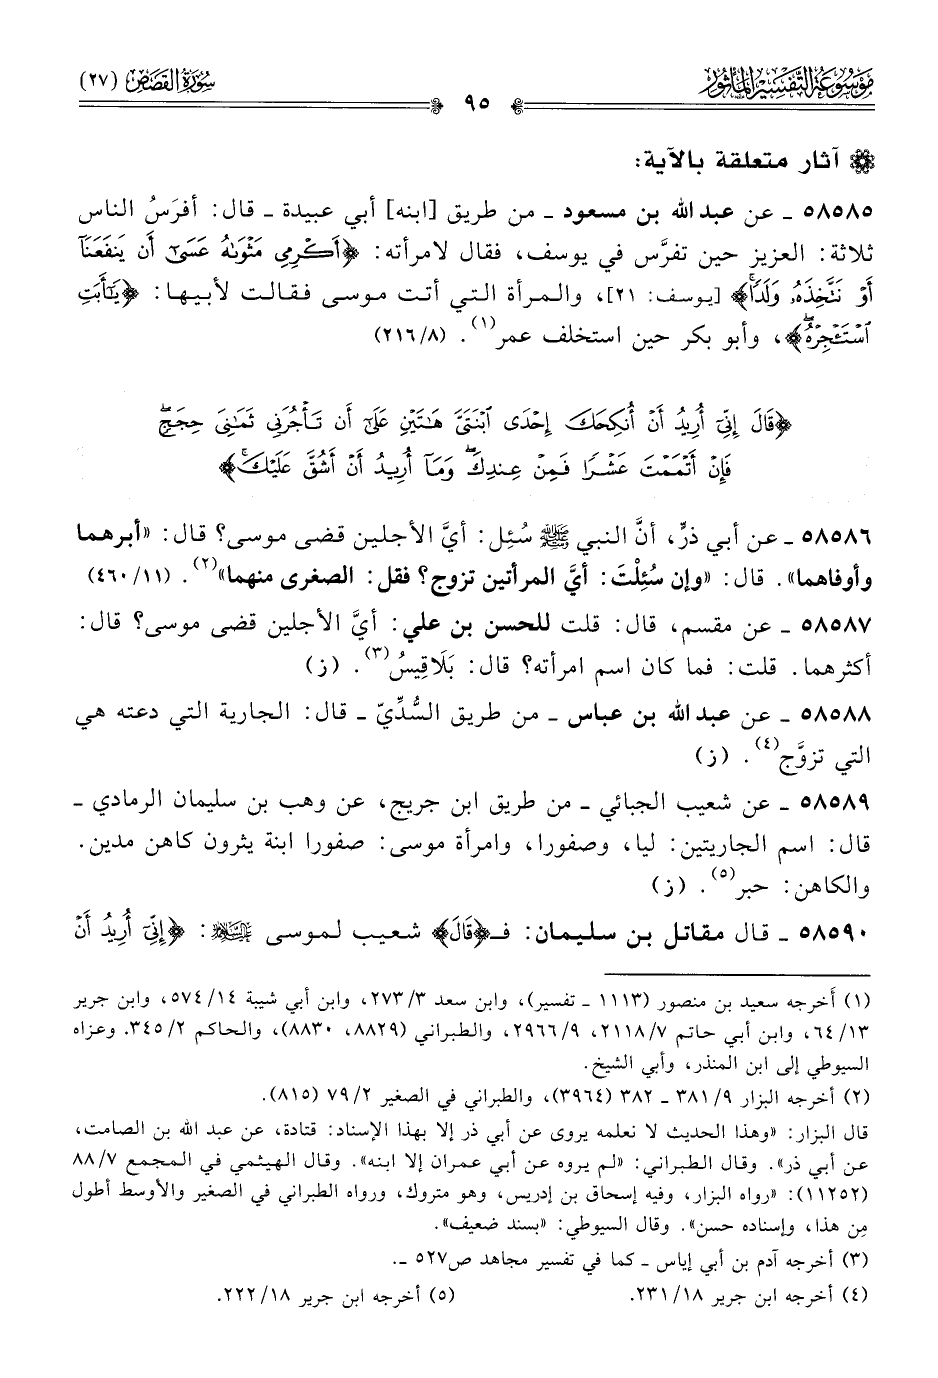 موسوعة التفسير المأثور
سورة القصص (٢٧)
٩٥
آثار متعلقة بالآية:
٥٨٥٨٥ ـ عن عبد الله بن مسعود ـ من طريق [ابنه] أبي عبيدة ـ قال: أفرَسُ الناس
ثلاثة: العزيز حين تفرَّس في يوسف، فقال لامرأته: ﴿أَكْرِمِي مَثْوَىٰهُ عَسَىٰٓ أَن يَنفَعَنَآ
أَوْ نَتَّخِذَهُۥ وَلَدًاۚ﴾ [يوسف: ٢١]، والمرأة التي أتت موسى فقالت لأبيها: ﴿يَٰٓأَبَتِ
ٱسْتَـْٔجِرْهُۖ﴾، وأبو بكر حين استخلف عمر(١). (٢١٦/٨)
﴿قَالَ إِنِّيٓ أُرِيدُ أَنْ أُنكِحَكَ إِحْدَى ٱبْنَتَيَّ هَٰتَيْنِ عَلَىٰٓ أَن تَأْجُرَنِي ثَمَٰنِيَ حِجَجٍۖ
فَإِنْ أَتْمَمْتَ عَشْرًا فَمِنْ عِندِكَۖ وَمَآ أُرِيدُ أَنْ أَشُقَّ عَلَيْكَۚ﴾
٥٨٥٨٦ ـ عن أبي ذرٍّ، أنَّ النبي ﷺ سُئِل: أيَّ الأجلين قضى موسى؟ قال: «أبرهما
وأوفاهما». قال: «وإن سُئِلْتَ: أيَّ المرأتين تزوج؟ فقل: الصغرى منهما»(٢). (٤٦٠/١١)
٥٨٥٨٧ ـ عن مقسم، قال: قلت للحسن بن علي: أيَّ الأجلين قضى موسى؟ قال:
أكثرهما. قلت: فما كان اسم امرأته؟ قال: بَلَاقِيسُ(٣). (ز)
٥٨٥٨٨ ـ عن عبد الله بن عباس ـ من طريق السُّدِّيّ ـ قال: الجارية التي دعته هي
التي تزوَّج(٤). (ز)
٥٨٥٨٩ ـ عن شعيب الجبائي ـ من طريق ابن جريج، عن وهب بن سليمان الرمادي ـ
قال: اسم الجاريتين: ليا، وصفورا، وامرأة موسى: صفورا ابنة يثرون كاهن مدين.
والكاهن: حبر(٥). (ز)
٥٨٥٩٠ ـ قال مقاتل بن سليمان: فـ﴿قَالَ﴾ شعيب لموسى عليه السلام: ﴿إِنِّيٓ أُرِيدُ أَنْ
(١) أخرجه سعيد بن منصور (١١١٣ ـ تفسير)، وابن سعد ٢٧٣/٣، وابن أبي شيبة ٥٧٤/١٤، وابن جرير
٦٤/١٣، وابن أبي حاتم ٢١١٨/٧، ٢٩٦٦/٩، والطبراني (٨٨٢٩، ٨٨٣٠)، والحاكم ٣٤٥/٢. وعزاه
السيوطي إلى ابن المنذر، وأبي الشيخ.
(٢) أخرجه البزار ٣٨١/٩ ـ ٣٨٢ (٣٩٦٤)، والطبراني في الصغير ٧٩/٢ (٨١٥).
قال البزار: «وهذا الحديث لا نعلمه يروى عن أبي ذر إلا بهذا الإسناد: قتادة، عن عبد الله بن الصامت،
عن أبي ذر». وقال الطبراني: «لم يروه عن أبي عمران إلا ابنه». وقال الهيثمي في المجمع ٨٨/٧
(١١٢٥٢): «رواه البزار، وفيه إسحاق بن إدريس، وهو متروك، ورواه الطبراني في الصغير والأوسط أطول
مِن هذا، وإسناده حسن». وقال السيوطي: «بسند ضعيف».
(٣) أخرجه آدم بن أبي إياس ـ كما في تفسير مجاهد ص٥٢٧ ـ.
(٤) أخرجه ابن جرير ٢٣١/١٨. (٥) أخرجه ابن جرير ٢٢٢/١٨.